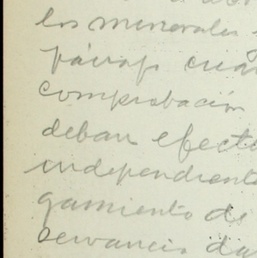 los minerales
párrafo cuan
comprobación
deban efectu
independiente
gamiento de
servancia da